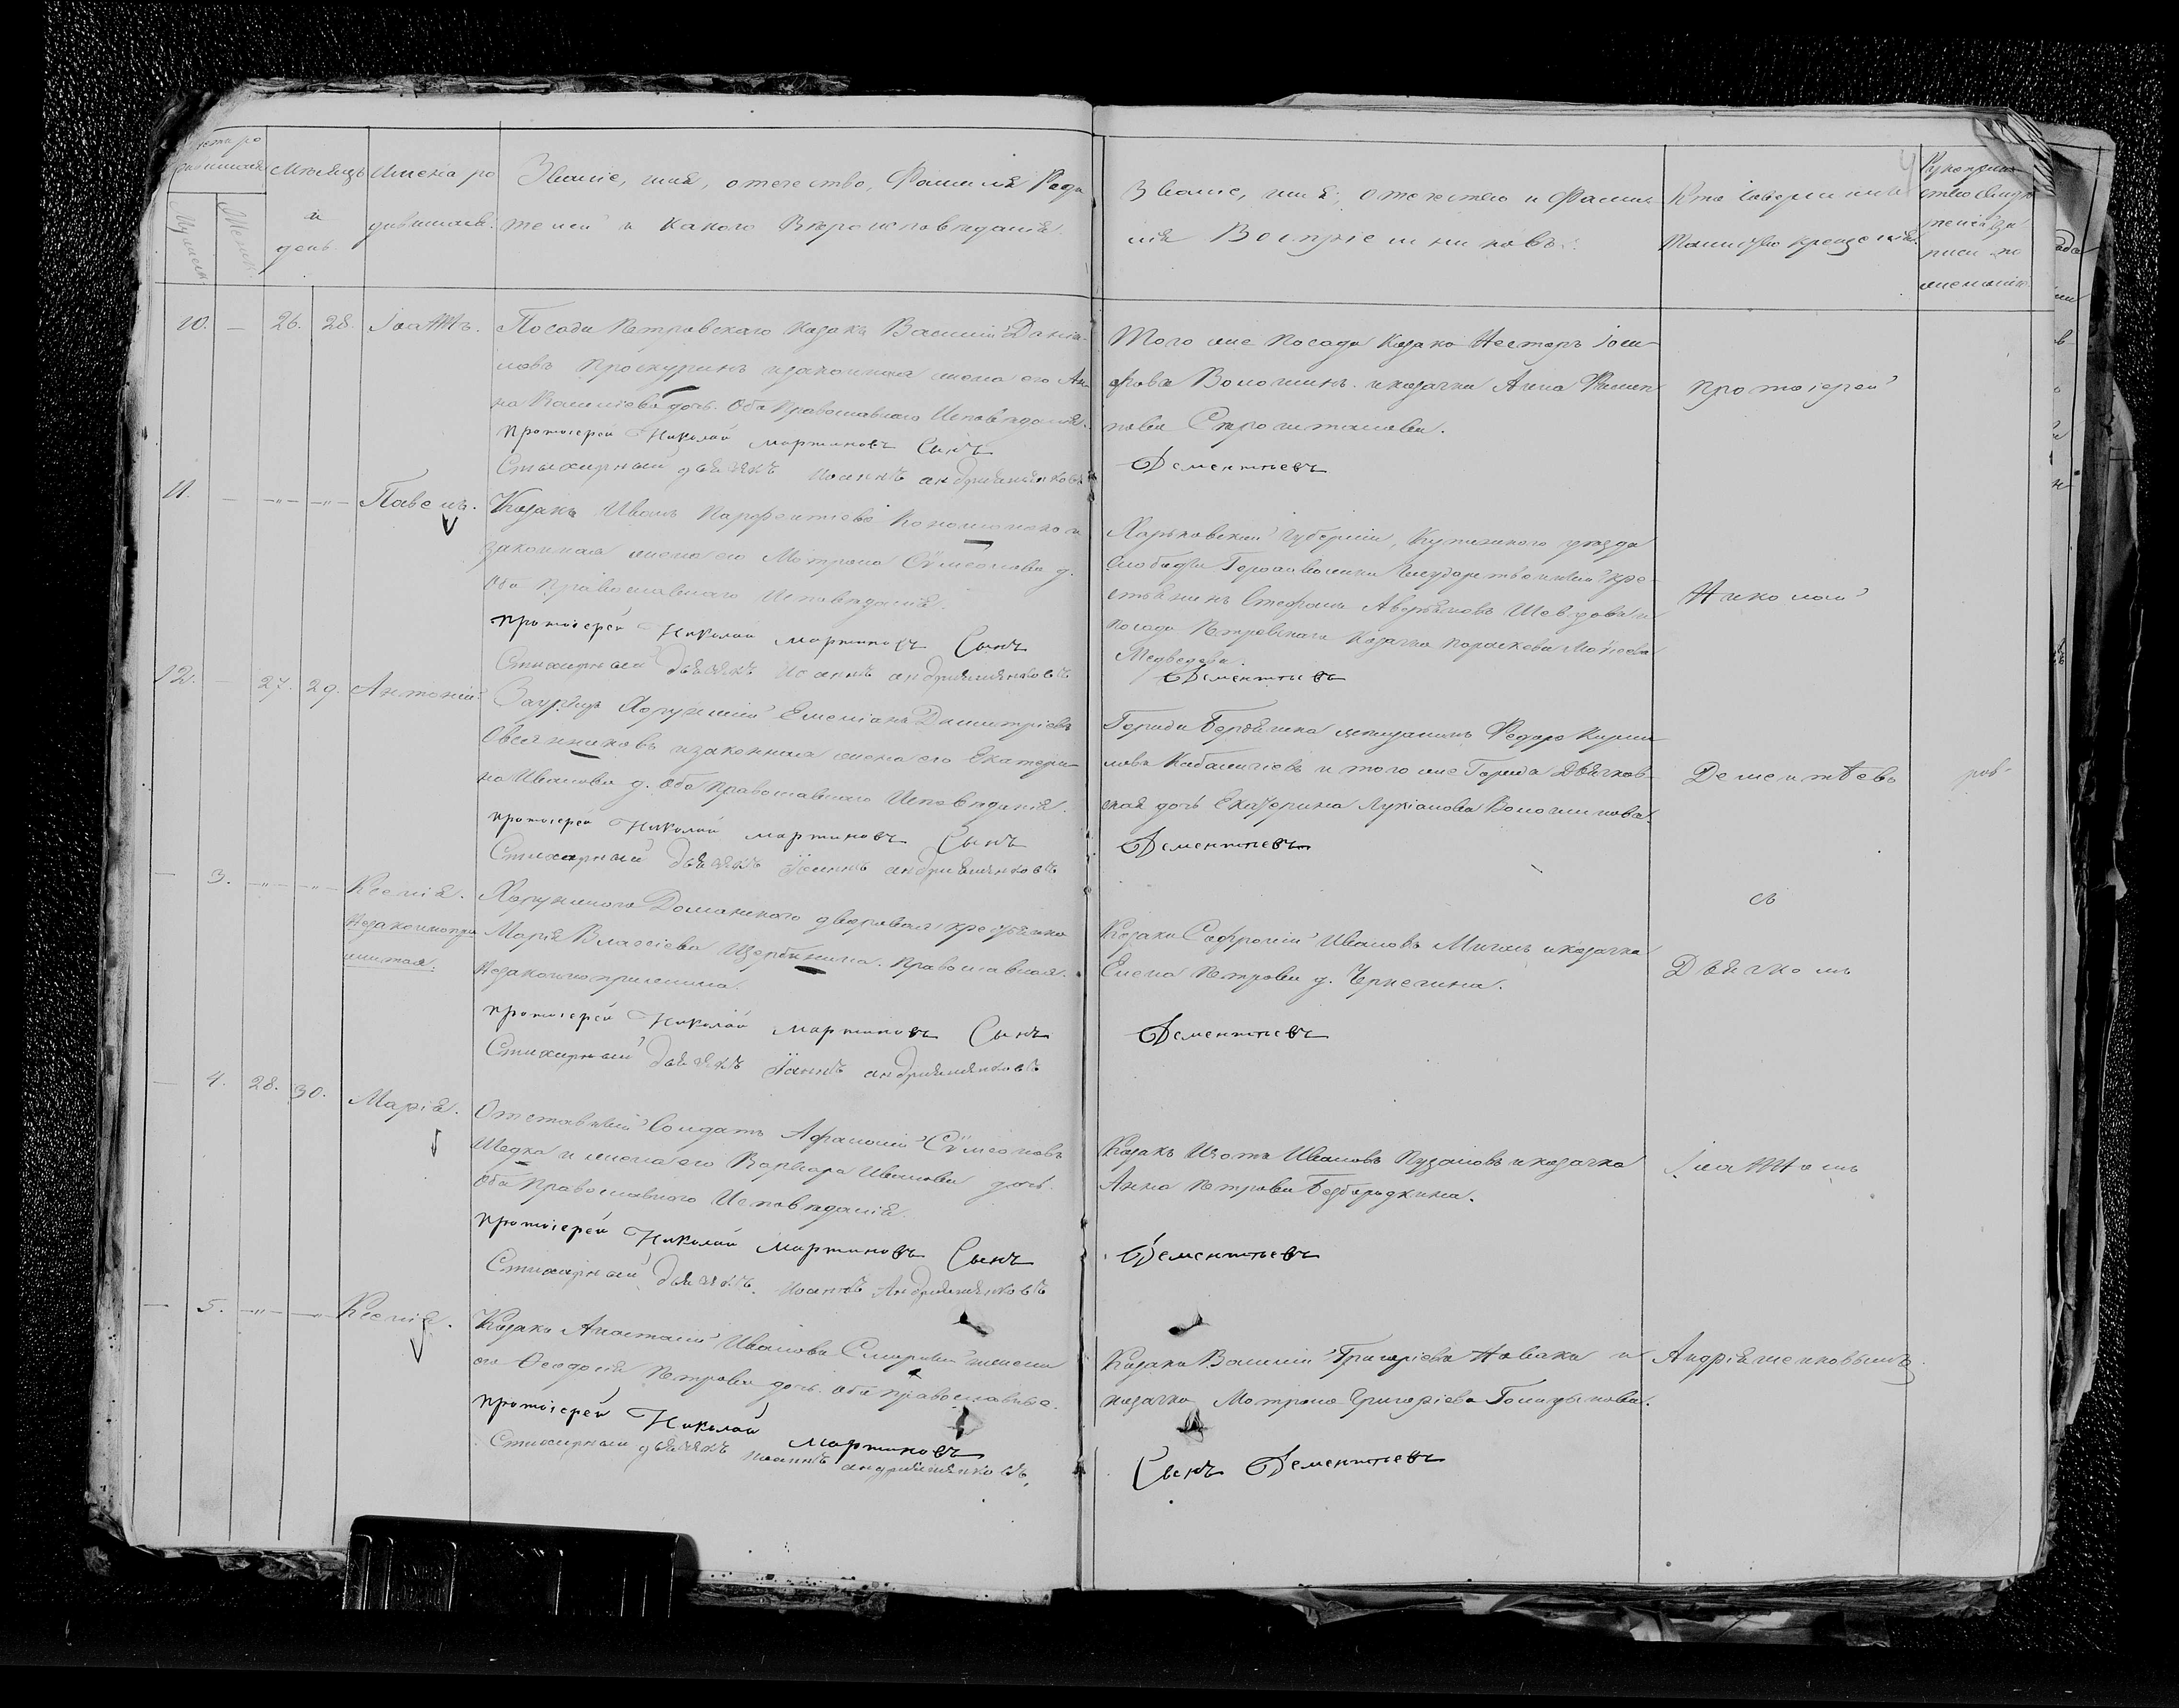 Счетъ ро
дившихся
Мужеск:
Женск:
Мѣсяцъ
и
день.
Имена ро
дившихся.
Званіе, имя, отечество, Фамилія Роди
телей и какого Вѣроисповѣданія.
Званіе, имя, отечество и Фами
лія Воспріемниковъ.
Кто совершилъ
Таинство крещенія.
Рукоприк
ство свидѣ
телей за
писи по
желанію.
10. — 26. 28. Іоаннъ.
Посада Петровскаго казакъ Василій Дани-
ловъ Проскуринъ и законная жена его Ан
на Василіева дочь. Оба Православнаго Исповѣданія.
протоіерей Николай мартиновъ Сынъ
Стихарный дьячокъ Иоаннъ андріяшенковъ
Того же посада казакъ Несторъ Іоси-
фовъ Волошинъ и казачка Анна Филип
пова
Дементьевъ
протоіерей
11. — —„— —„— Павелъ.
Казакъ Иванъ Парфентіевъ Кононенко и
законная жена его Матрона Сѵмеонова д.
Оба Православнаго Исповѣданія.
протоіерей Николай мартиновъ Сынъ
Стихарный дьячокъ Иоаннъ андріяшенковъ
Харьковской губерніи, Купянскаго уѣзда
слободы Государственный кре-
стьянинъ Стефанъ Аверьяновъ и
посада Петровскаго казачка Параскева Моисеева
Медведева.
Дементьевъ
Николай
12. — 27. 29. Антоній
Заурядъ Хорунжій Емеліанъ Димитріевъ
Овсянниковъ и законная жена его Екатери-
на Иванова д. оба Православнаго Исповѣданія.
протоіерей Николай мартиновъ Сынъ
Стихарный дьячокъ Іоаннъ андріяшенковъ
Города Бердянска мещанинъ Федоръ Кирил
ловъ и того же Города Дьячков-
ская дочь Екатерина Лукіанова Волошинова.
Дементьевъ
Дементьевъ
— 3. —„— —„— Ксенія.
Незаконнопри
житая.
Хорунжаго Доманскаго дворовая крестьянка
Марія Власіева Щербинина. православная.
Незаконноприжита.
протоіерей Николай мартиновъ Сынъ
Стихарный дьячокъ Іоаннъ андріяшенковъ
Казакъ Софроній Ивановъ и казачка
Елена Петрова д. Чернегина.
Дементьевъ
съ
Дьячкомъ
— 4. 28. 30. Марія.
Отставный Солдатъ Афанасій Сѵмеоновъ
Шедка и жена его Варвара Иванова дочь.
Оба Православнаго Исповѣданія.
протоіерей Николай Мартиновъ Сынъ
Стихарный дьячокъ. Иоаннъ Андріяшенковъ
Казакъ Изотъ Ивановъ Пузановъ и казачка
Анна Петрова Безбородкина.
Дементьевъ
Іоанномъ
— 5. —„— —„— Ксенія.
Казакъ Анастасій Ивановъ Смирный и жена
его Феодосія Петрова дочь. оба православные.
протоіерей Николай Мартиновъ
Стихарный дьячокъ Иоаннъ андріяшенковъ,
Казакъ Василій Григоріевъ Новакъ и
казачка Матрона Григоріева Голицынова.
Сынъ Дементьевъ
Андріяшенковымъ